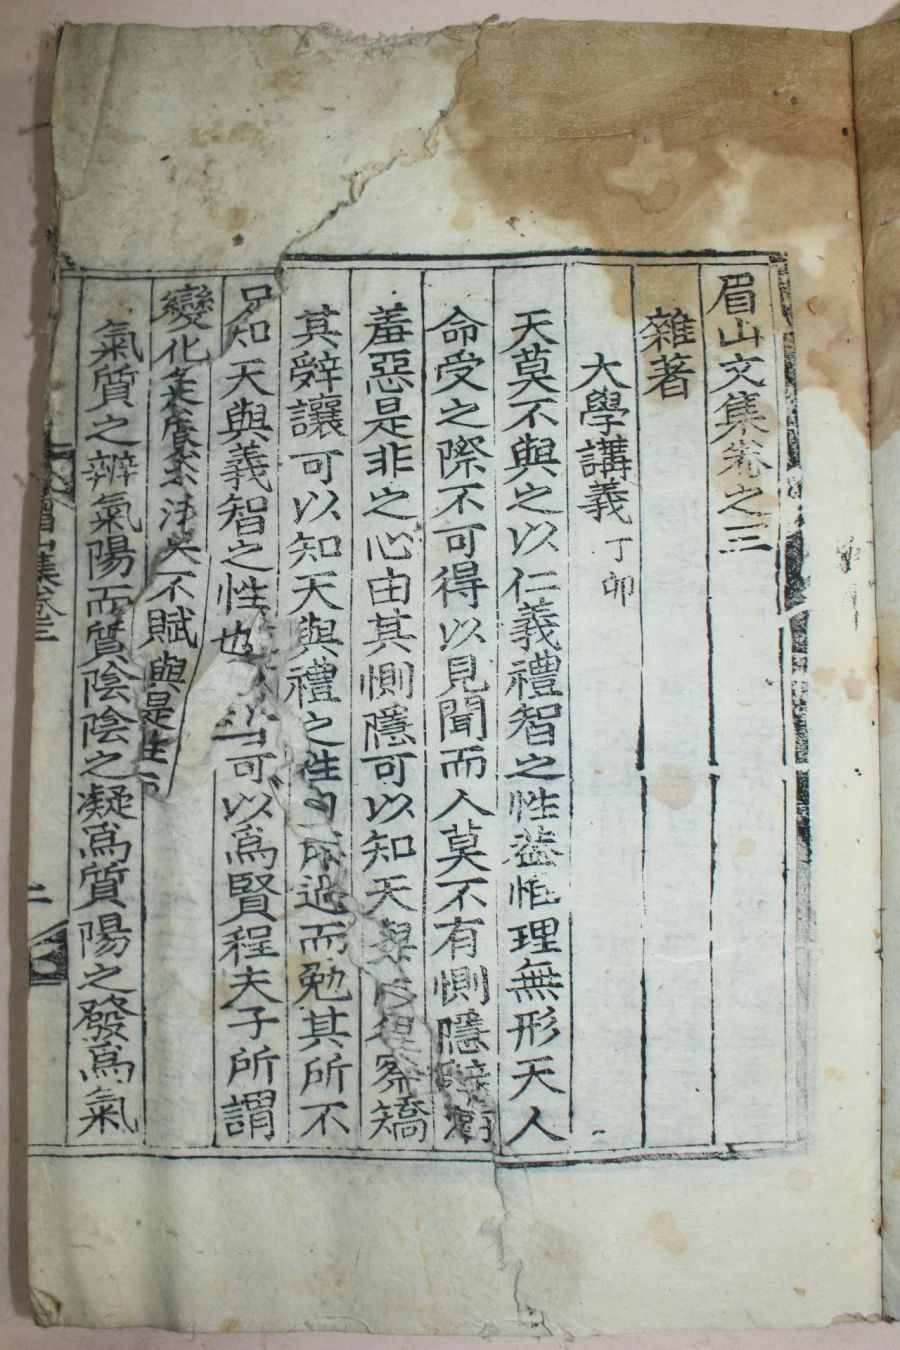 眉山文集卷之三
雜著
大學講義 丁卯
天莫不與之以仁義禮智之性蓋性理無形天人
命受之際不可得以見聞而人莫不有惻隱辭讓
羞惡是非之心由其惻隱可以知天與仁 察矯
其辭讓可以知天與禮之性 所過而勉其所不
足知天與義智之性也 可以爲賢程夫子所謂
變化氣質 不賦與是性而
氣質之辨氣陽而質陰陰之凝爲質陽之發爲氣
眉山集卷三